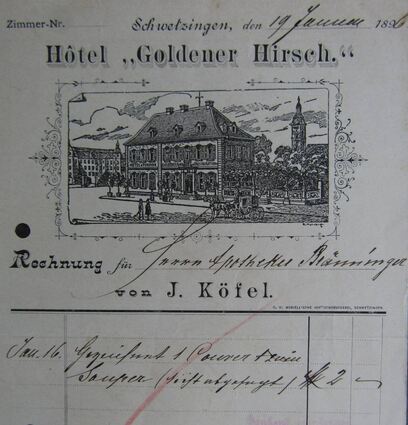 Zimmer-Nr.
Schwetzingen, den 19 Januar 1896
Hôtel „Goldener Hirsch.“
Rechnung für Herrn Apotheker Bränninger
von J. Köfel.
Jan. 16.
1 Couvert
Souper ( abgesagt) M 2 –